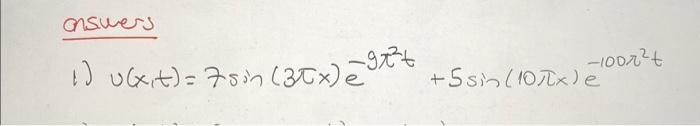 answers
1) u(x,t) = 7 sin(3πx) e^{-9π²t} + 5 sin(10πx) e^{-100π²t}